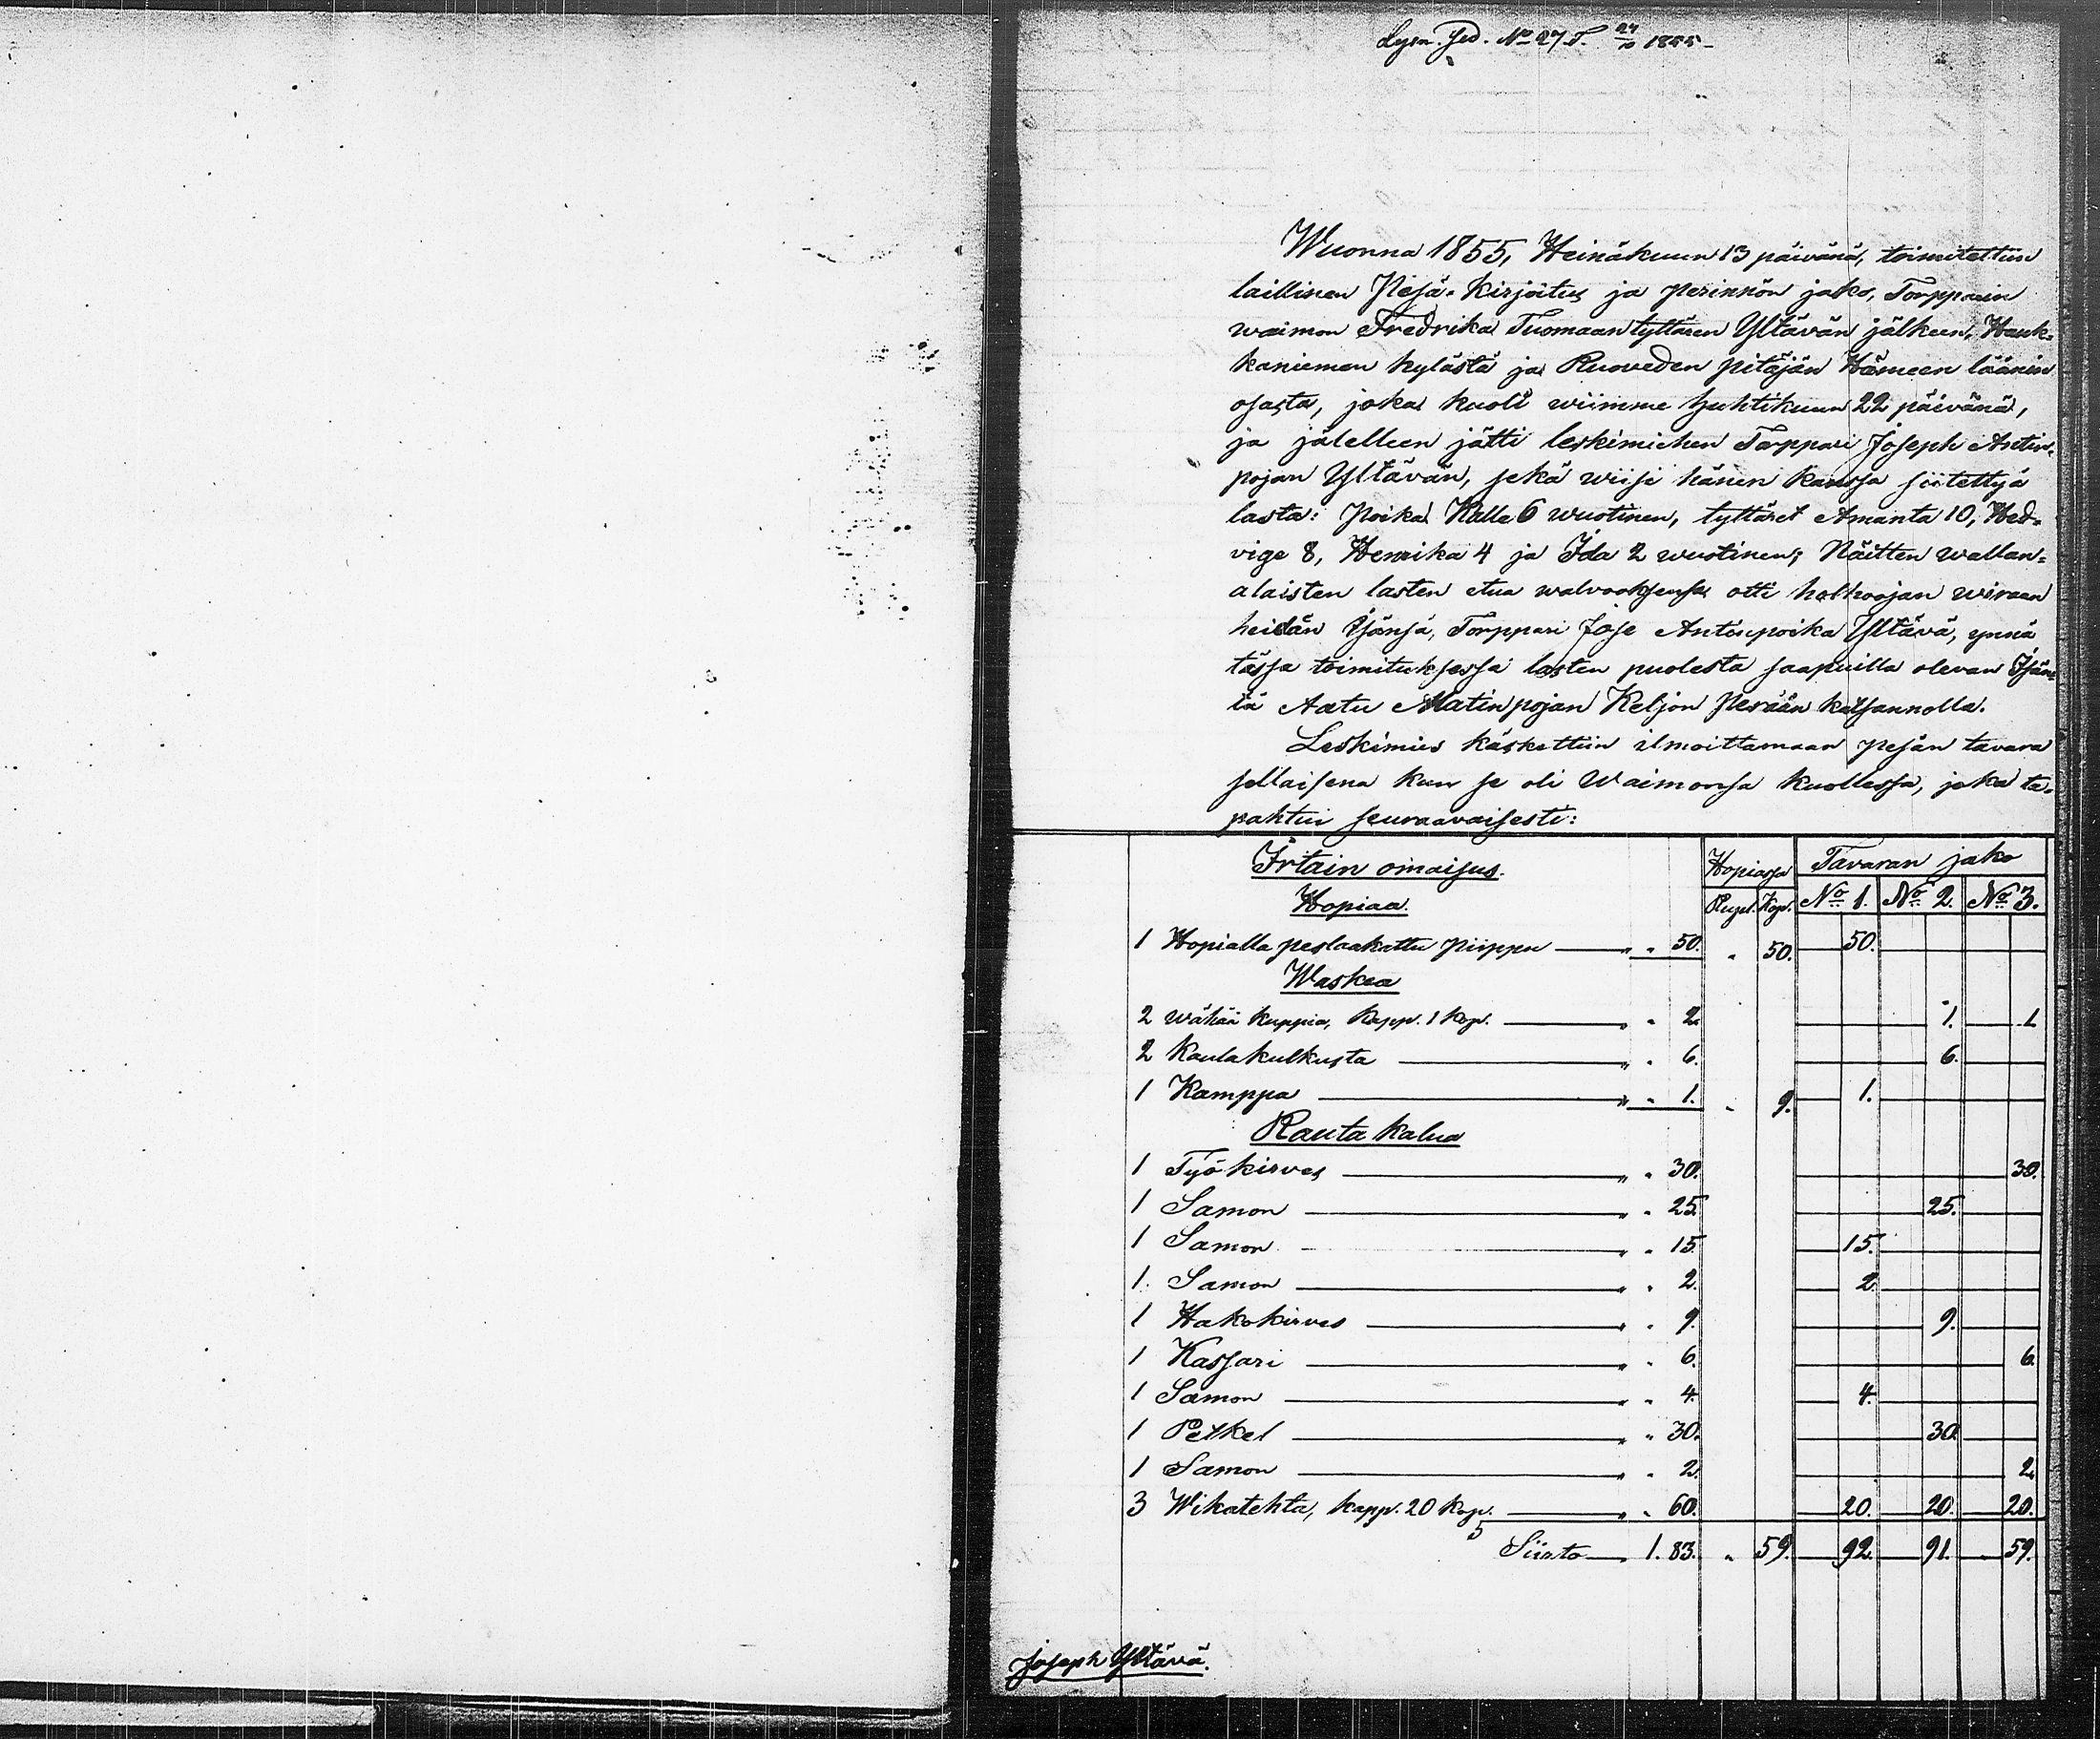 No 27 27/10 1855
Wuonna 1855, Heinäkuun 13 päivänä, toimitettiin
laillinen Pesä-Kirjoitus ja perinnön jako, Torpparin
waimon Fredrika Tuomaantyttären Yltävän jälkeen, Hauk-
kaniemen kylästä ja Ruoveden pitäjän Hämeen läänin
osasta, joka kuoli wiimme huhtikuun 22 päivänä,
ja jälelleen jätti leskimiehen Torppari Joseph Antin-
pojan Yltävän, sekä wiisi hänen kanssa siitettyä
lasta: Poika Kalle 6 wuotinen, tyttäret Amanta 10, Hed-
vige 8, Henrika 4 ja Ida 2 wuotinen; Näitten wallan-
alaisten lasten etua walvooksensa otti holhoojan wiraan
heidän Isänsä, Torppari Jose Antinpoika Yltävä, ynnä
tässä toimituksessa lasten puolesta saapuilla olevan Isän-
tä Aatu Matinpojan Keljon Perään katsannolla.
Leskimies käskettiin ilmoittamaan pesän tavara
sellaisena kun se oli Waimonsa kuollessa, joka ta-
pahtui seuraavaisesti:
Irtain omaisus. Hopiassa Tavaran jako
Hopiaa. Rupl. Kop. No 1. No 2. No 3.
1 Hopialla peslaakattu piippu — " " 50. " 50. 50.
Waskea
2 wähää kuppia, kapp. 1 kop. — " " 2. 1. 1
2 Kaulakulkusta — " " 6. 6.
1 Kamppa — " " 1. " 9. 1.
Rauta kalua
1 Työ kirves — " " 30. 30.
1 Samon — " " 25. 25.
1 Samon — " " 15. 15.
1. Samon — " " 2. 2.
1 Hakokirves — " " 9. 9.
1 Kassari — " " 6. 6.
1 Samon — " " 4. 4.
1 Petkel — " " 30. 30.
1 Samon — " " 2. 2.
3 Wikatehta, kapp. 20 kop. — " " 60. 20. 20. 20.
Siirto — 1. 83. " 59. 92. 91. 59.
Joseph Yltävä.